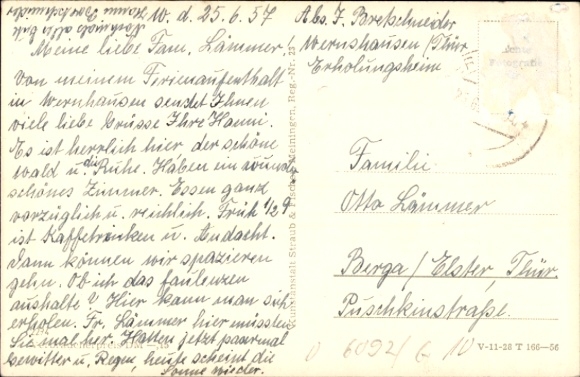 W. d. 25.6.57
Meine liebe Fam. Lämmer!
Von meinem Ferienaufenthalt
in Wernshausen sendet Ihnen
viele liebe Grüsse Ihre Hanni.
Es ist herrlich hier der schöne
Wald u. die Ruhe. Haben ein wunder
schönes Zimmer. Essen ganz
vorzüglich u. reichlich. Früh 1/2 9
ist Kaffetrinken u. Andacht.
Dann können wir spazieren
gehn. Ob ich das faulenzen
aushalte? Hier kann man sich
erholen. Fr. Lämmer hier müssten
Sie mal her. Hatten jetzt paarmal
Gewitter u. Regen, heute scheint die
Sonne wieder.
Hanni Bretschneider
Kunstanstalt Straub & Fischer, Meiningen, Reg.-Nr. 23
Abs. F. Bretschneider
Wernshausen/Thür.
Erholungsheim
Familie
Otto Lämmer
Berga/Elster, Thür.
Puschkinstraße.
V-11-28 T 166-56